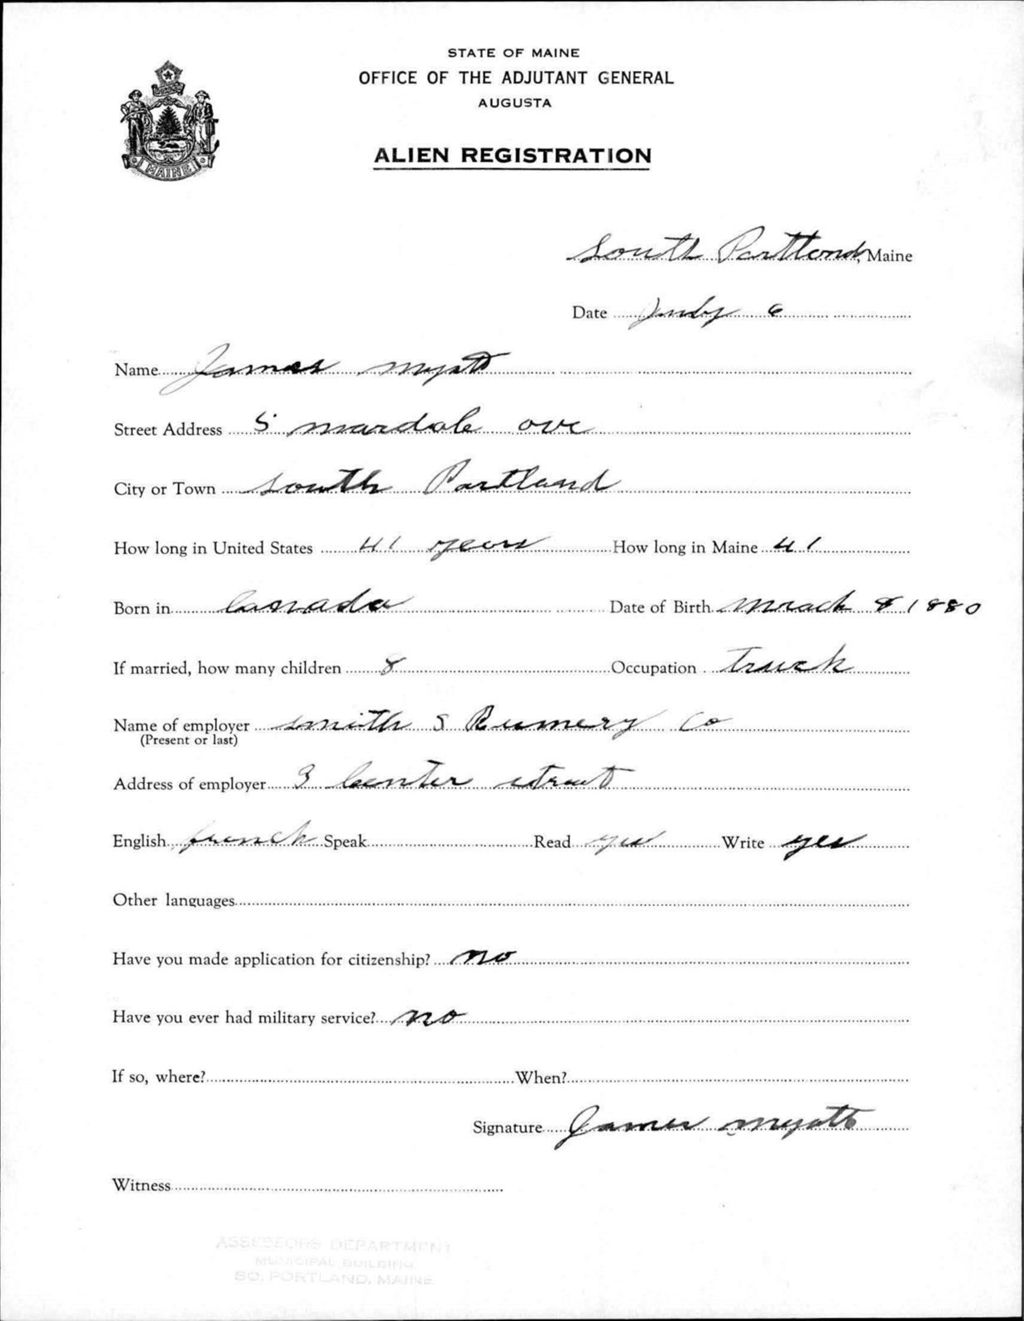 STATE OF MAINE
OFFICE OF THE ADJUTANT GENERAL
AUGUSTA
ALIEN REGISTRATION
MAINE
South Portland, Maine
Date July 6
Name James Myatt
Street Address 5 mardale ave
City or Town South Portland
How long in United States 41 years How long in Maine 41
Born in Canada Date of Birth Mrach 8 1880
If married, how many children 8 Occupation truck
Name of employer smith S Rumery Co
(Present or last)
Address of employer 3 Center street
English french Speak Read yes Write yes
Other languages
Have you made application for citizenship? no
Have you ever had military service? no
If so, where? When?
Signature James Myatt
Witness
ASSESSORS DEPARTMENT
MUNICIPAL BUILDING
SO. PORTLAND, MAINE